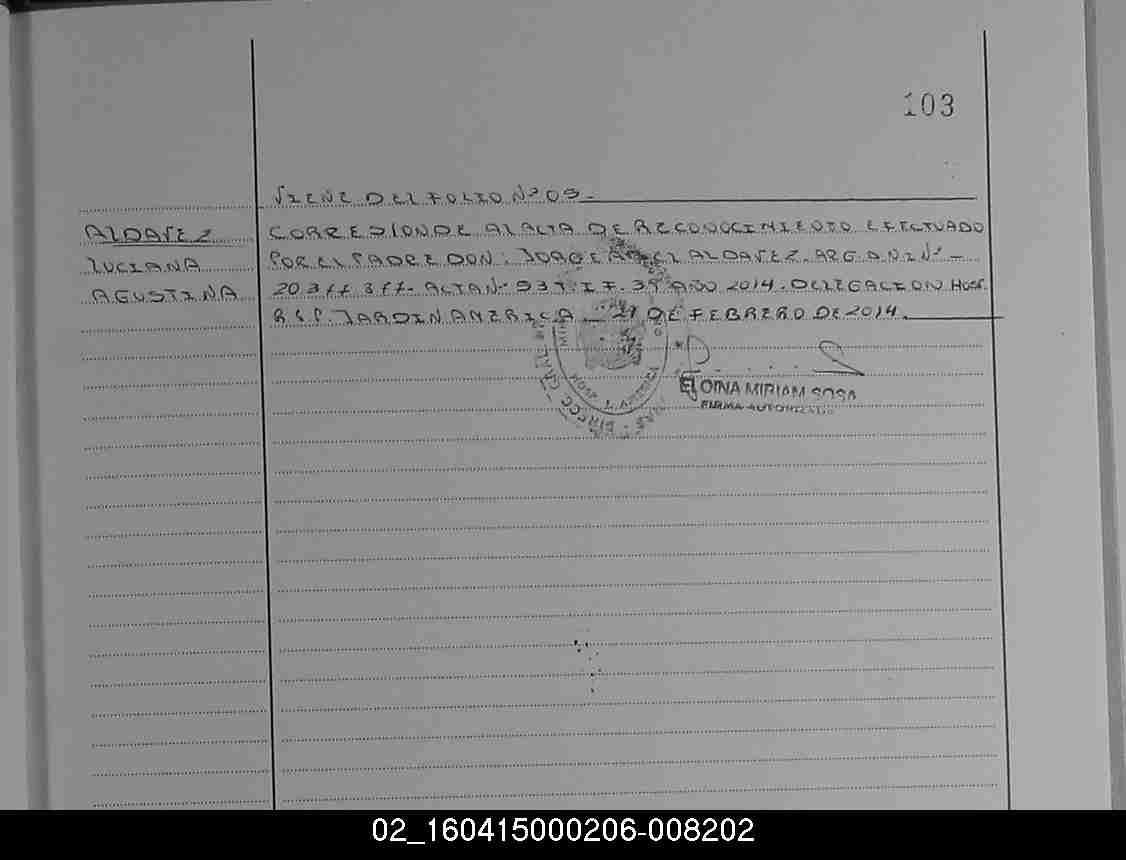 103
VIENE DEL FOLIO Nº 09.
ALDAVEZ
LUCIANA
AGUSTINA
CORRESPONDE AL ACTA DE RECONOCIMIENTO EFECTUADO
POR EL PADRE DON: JORGE ALDAVEZ. ARG. D.N.I Nº-
ACTA Nº AÑO 2014. DELEGACION HOSP.
JARDIN AMERICA. 21 DE FEBRERO DE 2014.
ELOINA MIRIAM SOSA
FIRMA AUTORIZADA
02_160415000206-008202